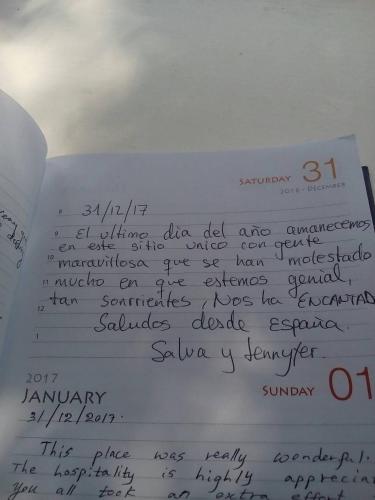 SATURDAY 31
2016 · DECEMBER
8 31/12/17
9 El ultimo dia del año amanecemos
en este sitio unico con gente
10 maravillosa que se han molestado
11 mucho en que estemos genial,
tan sonrrientes, Nos ha ENCANTAD
12 Saludos desde españa.
1 Salva y Jennyfer.
2017
JANUARY
SUNDAY 01
31/12/2017.
This place was really wonderful.
The hospitality is highly apprecia
You all took an extra effort